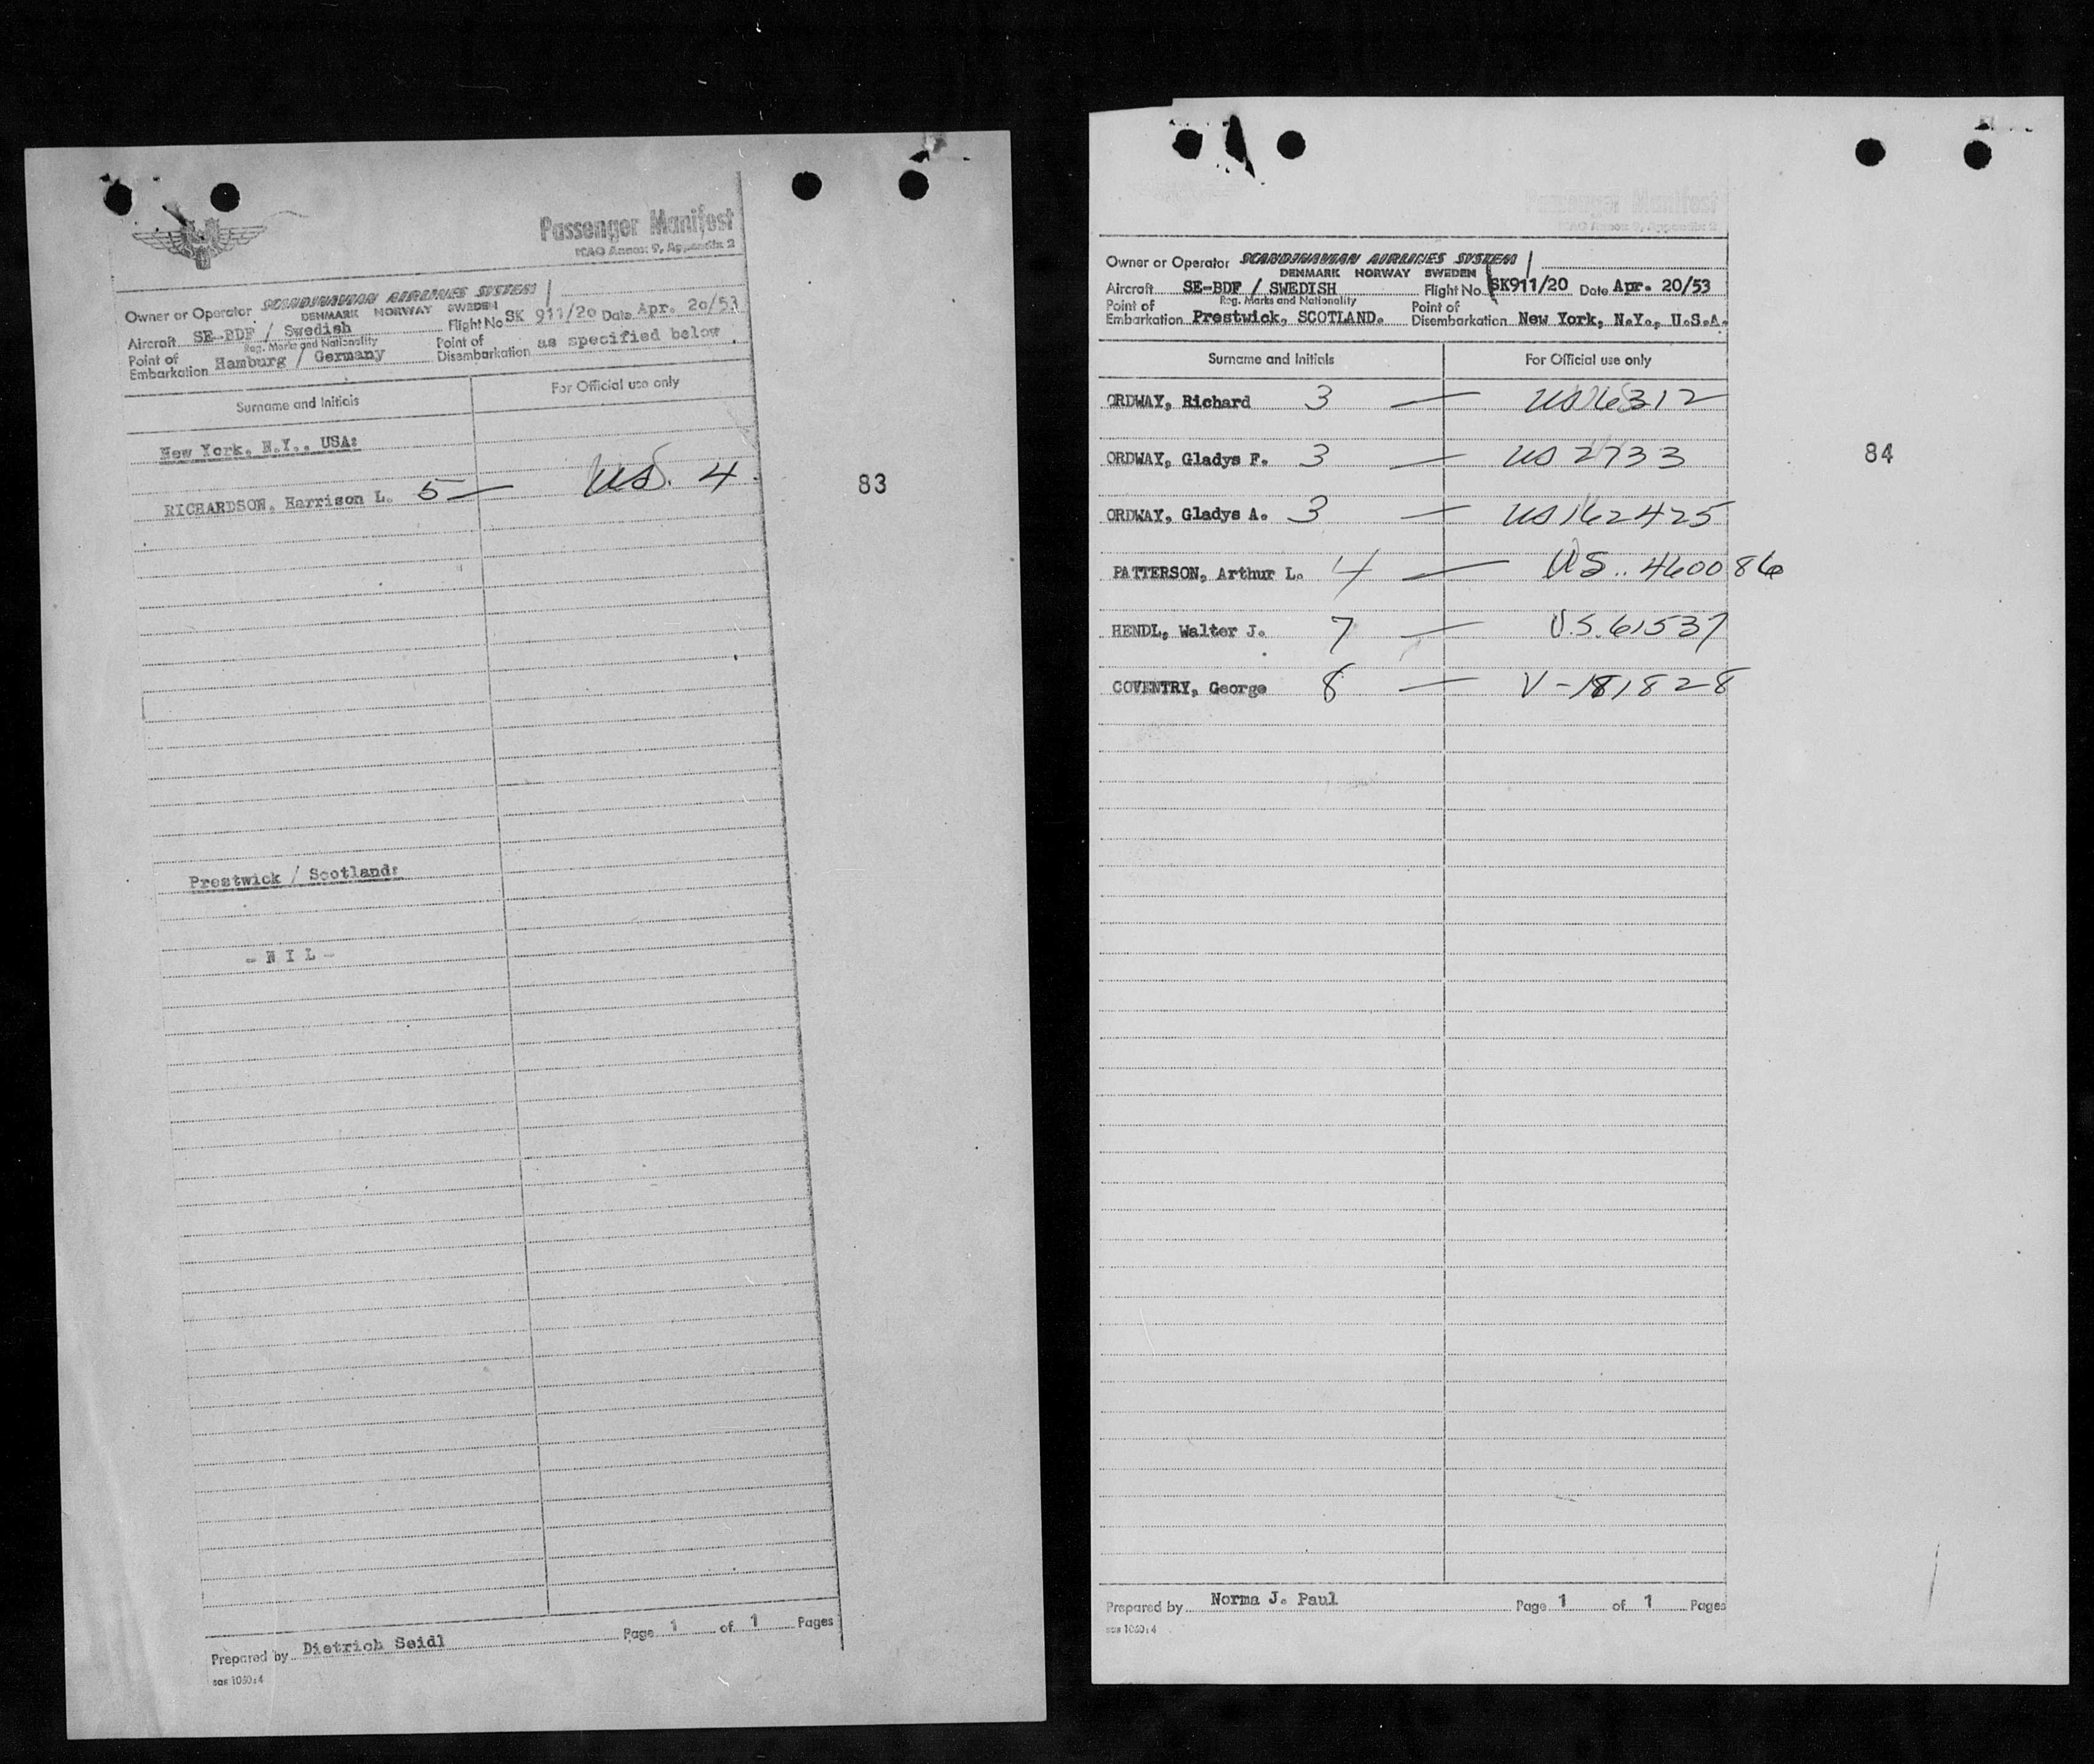 Passenger Manifest
ICAO Annex 9, Appendix 2
Owner or Operator SCANDINAVIAN AIRLINES SYSTEM
DENMARK NORWAY SWEDEN
Aircraft SE-BDF / Swedish Flight No SK 911/20 Date Apr. 20/53
Reg. Marks and Nationality
Point of Embarkation Hamburg / Germany Point of Disembarkation as specified below
Surname and Initials For Official use only
New York, N.Y., USA:
RICHARDSON, Harrison L. 5 — US. 4
83
Prestwick / Scotland:
- N I L -
Prepared by Dietrich Seidl Page 1 of 1 Pages
sas 1030:4
Passenger Manifest
ICAO Annex 9, Appendix 2
Owner or Operator SCANDINAVIAN AIRLINES SYSTEM
DENMARK NORWAY SWEDEN
Aircraft SE-BDF / SWEDISH Flight No. SK911/20 Date Apr. 20/53
Reg. Marks and Nationality
Point of Embarkation Prestwick, SCOTLAND. Point of Disembarkation New York, N.Y., U.S.A.
Surname and Initials For Official use only
ORDWAY, Richard 3 — US16312
ORDWAY, Gladys F. 3 — US 2733
84
ORDWAY, Gladys A. 3 — US162425
PATTERSON, Arthur L. 4 — US..460086
HENDL, Walter J. 7 — U.S.61537
COVENTRY, George 8 — V-181828
Prepared by Norma J. Paul Page 1 of 1 Pages
sas 1030:4